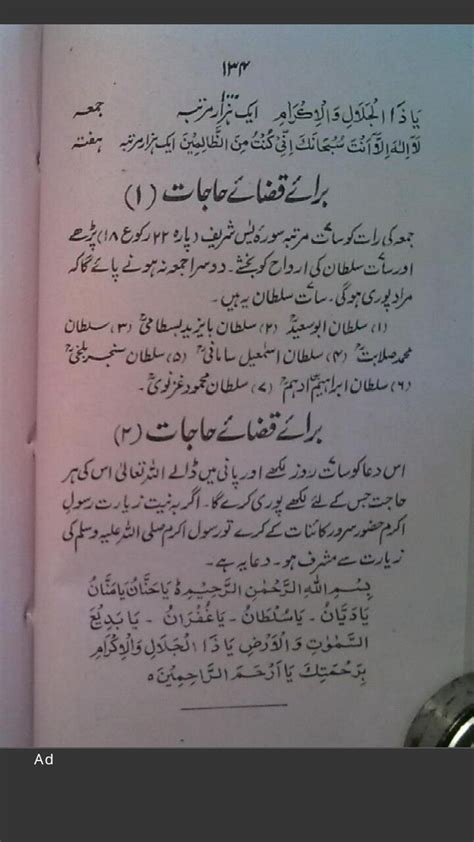 ۱۳۴
یَا ذَا الْجَلَالِ وَالْاِکْرَامِ ایک ہزار مرتبہ جمعہ
لَآ اِلٰہَ اِلَّا اَنْتَ سُبْحَانَکَ اِنِّیْ کُنْتُ مِنَ الظَّالِمِیْنَ ایک ہزار مرتبہ ہفتہ
برائے قضائے حاجات (۱)
جمعہ کی رات کو سات مرتبہ سورہ یٰس شریف (پارہ ۲۲ رکوع ۱۸) پڑھے
اور سات سلطان کی ارواح کو بخشے۔ دوسرا جمعہ نہ ہونے پائے گا کہ
مراد پوری ہوگی۔ سات سلطان یہ ہیں۔
(۱) سلطان ابوسعیدؒ (۲) سلطان بایزید بسطامیؒ (۳) سلطان
محمد صلابتؒ (۴) سلطان اسمٰعیل سامانیؒ (۵) سلطان سنجر بلخیؒ
(۶) سلطان ابراہیم ادہمؒ (۷) سلطان محمود غزنویؒ۔
برائے قضائے حاجات (۲)
اس دعا کو سات روز لکھے اور پانی میں ڈالے اللہ تعالیٰ اس کی ہر
حاجت جس کے لئے لکھے پوری کرے گا۔ اگر بہ نیت زیارت رسول
اکرم حضور سرور کائنات کے کرے تو رسول اکرم صلی اللہ علیہ وسلم کی
زیارت سے مشرف ہو۔ دعا یہ ہے۔
بِسْمِ اللہِ الرَّحْمٰنِ الرَّحِیْمِ ؕ یَا حَنَّانُ یَا مَنَّانُ
یَا دَیَّانُ۔ یَا سُلْطَانُ۔ یَا غُفْرَانُ۔ یَا بَدِیْعَ
السَّمٰوٰتِ وَالْاَرْضِ یَا ذَا الْجَلَالِ وَالْاِکْرَامِ
بِرَحْمَتِکَ یَا اَرْحَمَ الرَّاحِمِیْنَ ہ
Ad